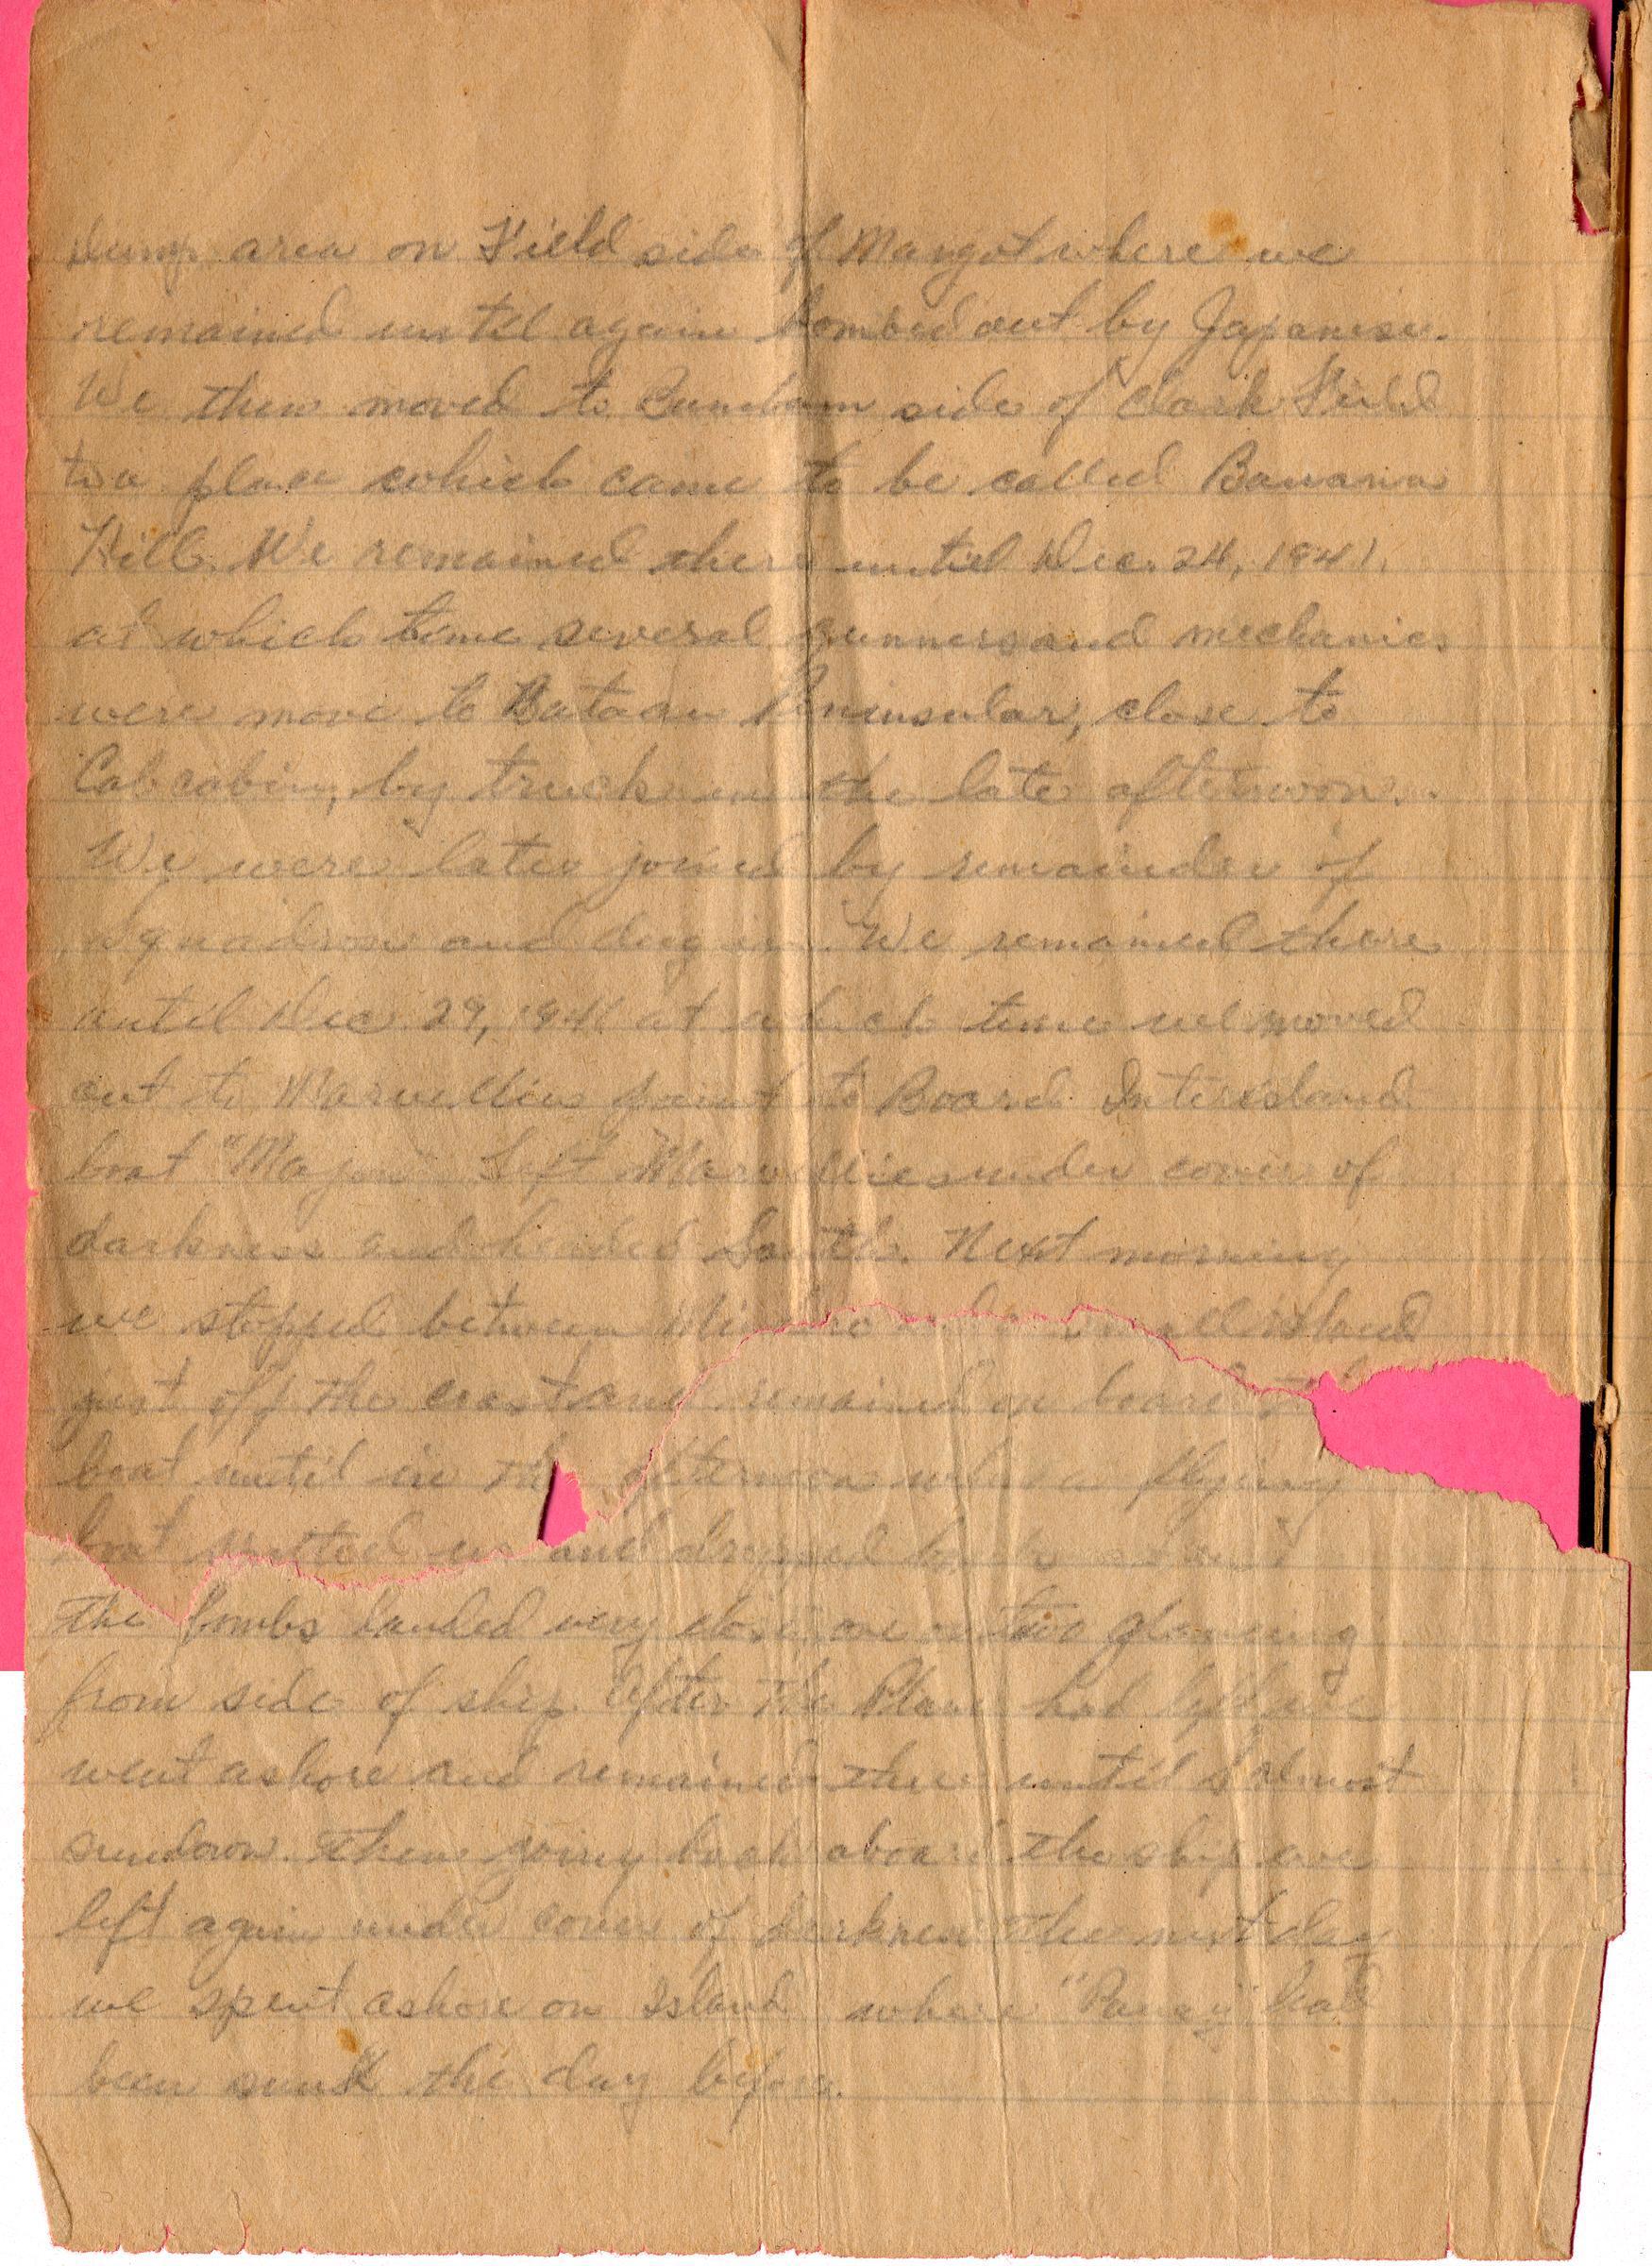 Dump area on Field side of Margot where we
remained until again bombed out by Japanese.
We then moved to Bamban side of Clark Field
to a place which came to be called Banana
Hill. We remained there until Dec. 24, 1941.
at which time several gunners and mechanics
were move to Bataan Peninsular, close to
Cabcabin, by truck in the late afternoon.
We were later joined by remainder of
squadron and dug in. We remained there
until Dec 29, 1941 at which time we moved
out to Marvellies point to Board Interisland
boat "Mayon" Left Marvellies under cover of
darkness and headed South. Next morning
we stopped between Mindoro and small island
just off the coast and remained on board the
boat until in the afternoon when flying
boat spotted us and dropped
the bombs landed very close one or two glancing
from side of ship. After the Plane had left we
went ashore and remained there until almost
sundown. then going back aboard the ship we
left again under cover of darkness the next day
we spent ashore on Island where "Panay" had
been sunk the day before.